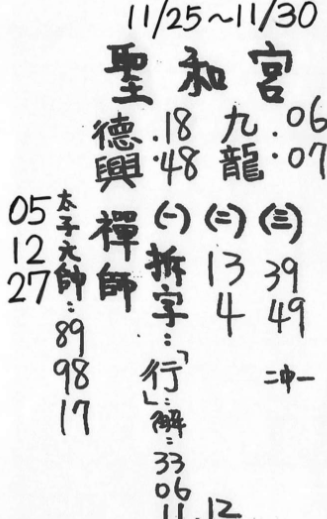 11/25~11/30
聖和宮
德興.18.48
九龍.06.07
禪師
(一)
拆字:「行」:解:33 06 11.12
(二)
13
4
(三)
39
49
二中一
太子元帥:89 98 17
05
12
27